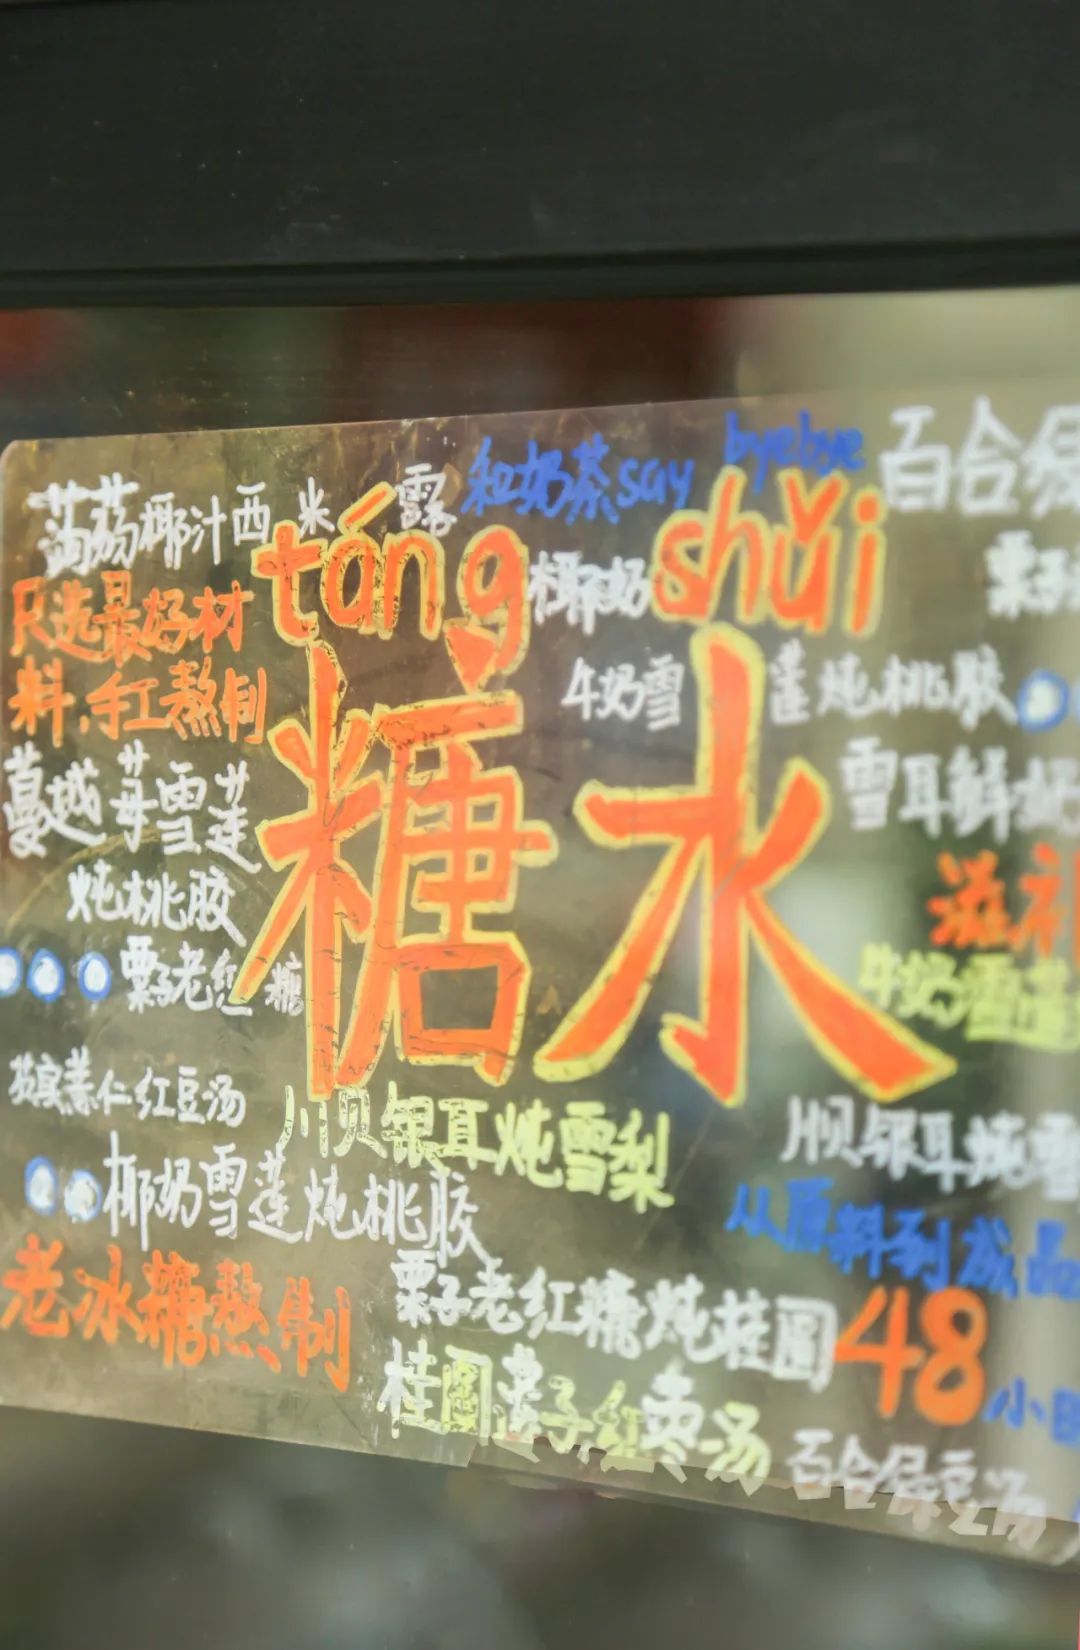 和奶茶say byebye
百合绿
蒟蒻椰汁西米露
táng shuǐ
椰奶
栗子
只选最好材
料,手工熬制
糖水
牛奶雪莲炖桃胶
蔓越莓雪莲
炖桃胶
雪耳鲜奶
滋补
栗子老红糖
牛奶雪莲
芡实薏仁红豆汤
川贝银耳炖雪梨
川贝银耳炖雪
椰奶雪莲炖桃胶
从原料到成品
老冰糖熬制
栗子老红糖炖桂圆
48小时
桂圆莲子红枣汤
百合绿豆汤